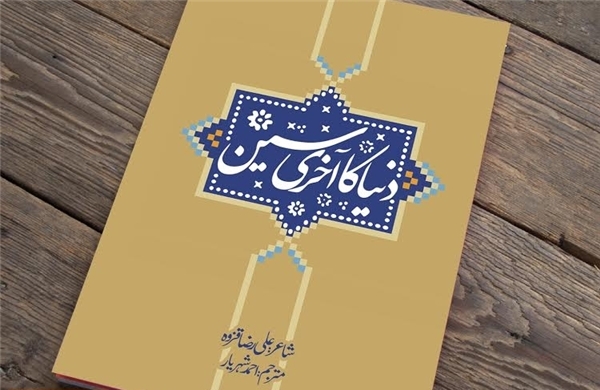 دنیا کا آخری سین
شاعر: علی رضا قزوہ
مترجم: احمد شہریار